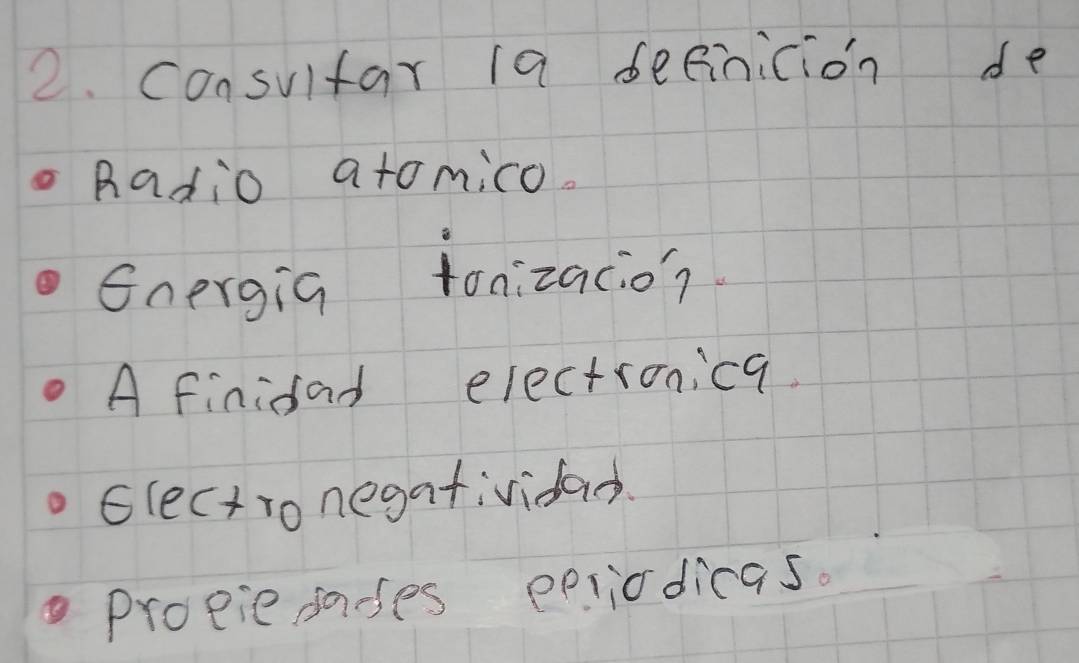 2. Consultar la definición de
• Radio atomico.
• Energia ionización.
• Afinidad electronica.
• Electronegatividad.
• propiedades periodicas.